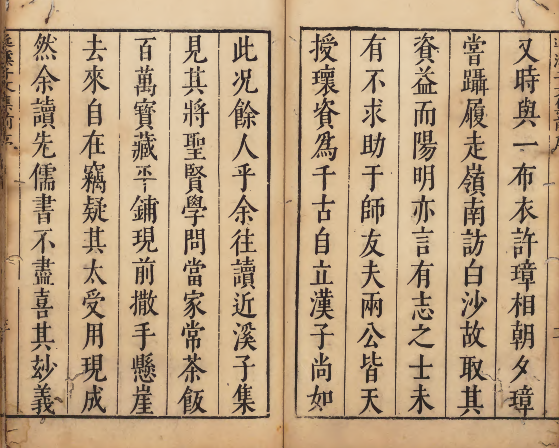 又時與一布衣許璋相朝夕璋
嘗躡履走嶺南訪白沙故取其
資益而陽明亦言有志之士未
有不求助于師友夫兩公皆天
授瓌資爲千古自立漢子尚如
此况餘人乎余往讀近溪子集
見其將聖賢學問當家常茶飯
百萬寶藏平鋪現前撒手懸崖
去來自在竊疑其太受用現成
然余讀先儒書不盡喜其玅義